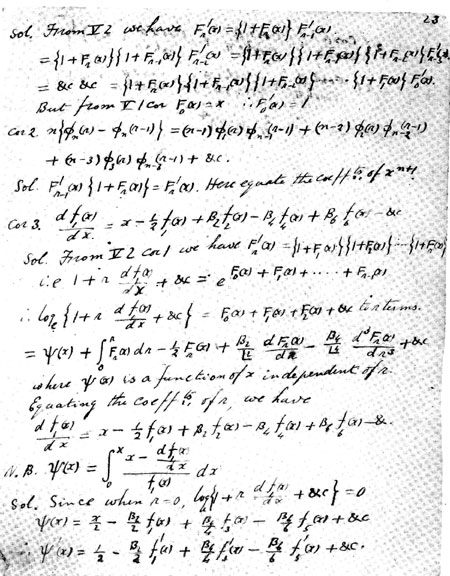 23
Sol. From V 2 we have F'_r(x) = {1+F_{r-1}(x)} F'_{r-1}(x)
= {1+F_{r-1}(x)}{1+F_{r-2}(x)} F'_{r-2}(x)
= &c &c = {1+F_{r-1}(x)}{1+F_{r-2}(x)} ..... {1+F_0(x)} F'_0(x).
But from V 1 cor F_0(x) = x ∴ F'_0(x) = 1
Cor 2. n{φ_n(r) − φ_n(r-1)} = (n-1) φ_1(r) φ_{n-1}(r-1) + (n-2) φ_2(r) φ_{n-2}(r-1)
+ (n-3) φ_3(r) φ_{n-3}(r-1) + &c.
Sol. F'_{r-1}(x) {1+F_r(x)} = F'_r(x). Here equate the coeff^{ts} of x^{n+1}.
Cor 3. d f_1(x)/dx = x − ½ f_1(x) + B_2 f_2(x) − B_4 f_4(x) + B_6 f_6(x) − &c
Sol. From V 2 cor 1 we have F'_r(x) = {1+F_1(x)}{1+F_2(x)} ... {1+F_r(x)}
i.e 1 + r d f_1(x)/dx + &c = e^{F_0(x) + F_1(x) + ..... + F_{r-1}(x)}
∴ log_e {1 + r d f_1(x)/dx + &c} = F_0(x) + F_1(x) + F_2(x) + &c to r terms.
= ψ(x) + ∫_0^r F_r(x) dr − ½ F_r(x) + B_2/|2 d F_r(x)/dr − B_4/|4 d³F_r(x)/dr³ + &c
where ψ(x) is a function of x independent of r.
Equating the coeff^{ts} of r, we have
d f_1(x)/dx = x − ½ f_1(x) + B_2 f_2(x) − B_4 f_4(x) + B_6 f_6(x) − &c.
N.B. ψ(x) = ∫_0^x (x − d f_1(x)/dx)/f_1(x) dx
Sol. Since when r = 0, log {1 + r d f_1(x)/dx + &c} = 0
ψ(x) = x/2 − B_2/2 f_1(x) + B_4/4 f_3(x) − B_6/6 f_5(x) + &c
∴ ψ'(x) = 1/2 − B_2/2 f'_1(x) + B_4/4 f'_3(x) − B_6/6 f'_5(x) + &c.